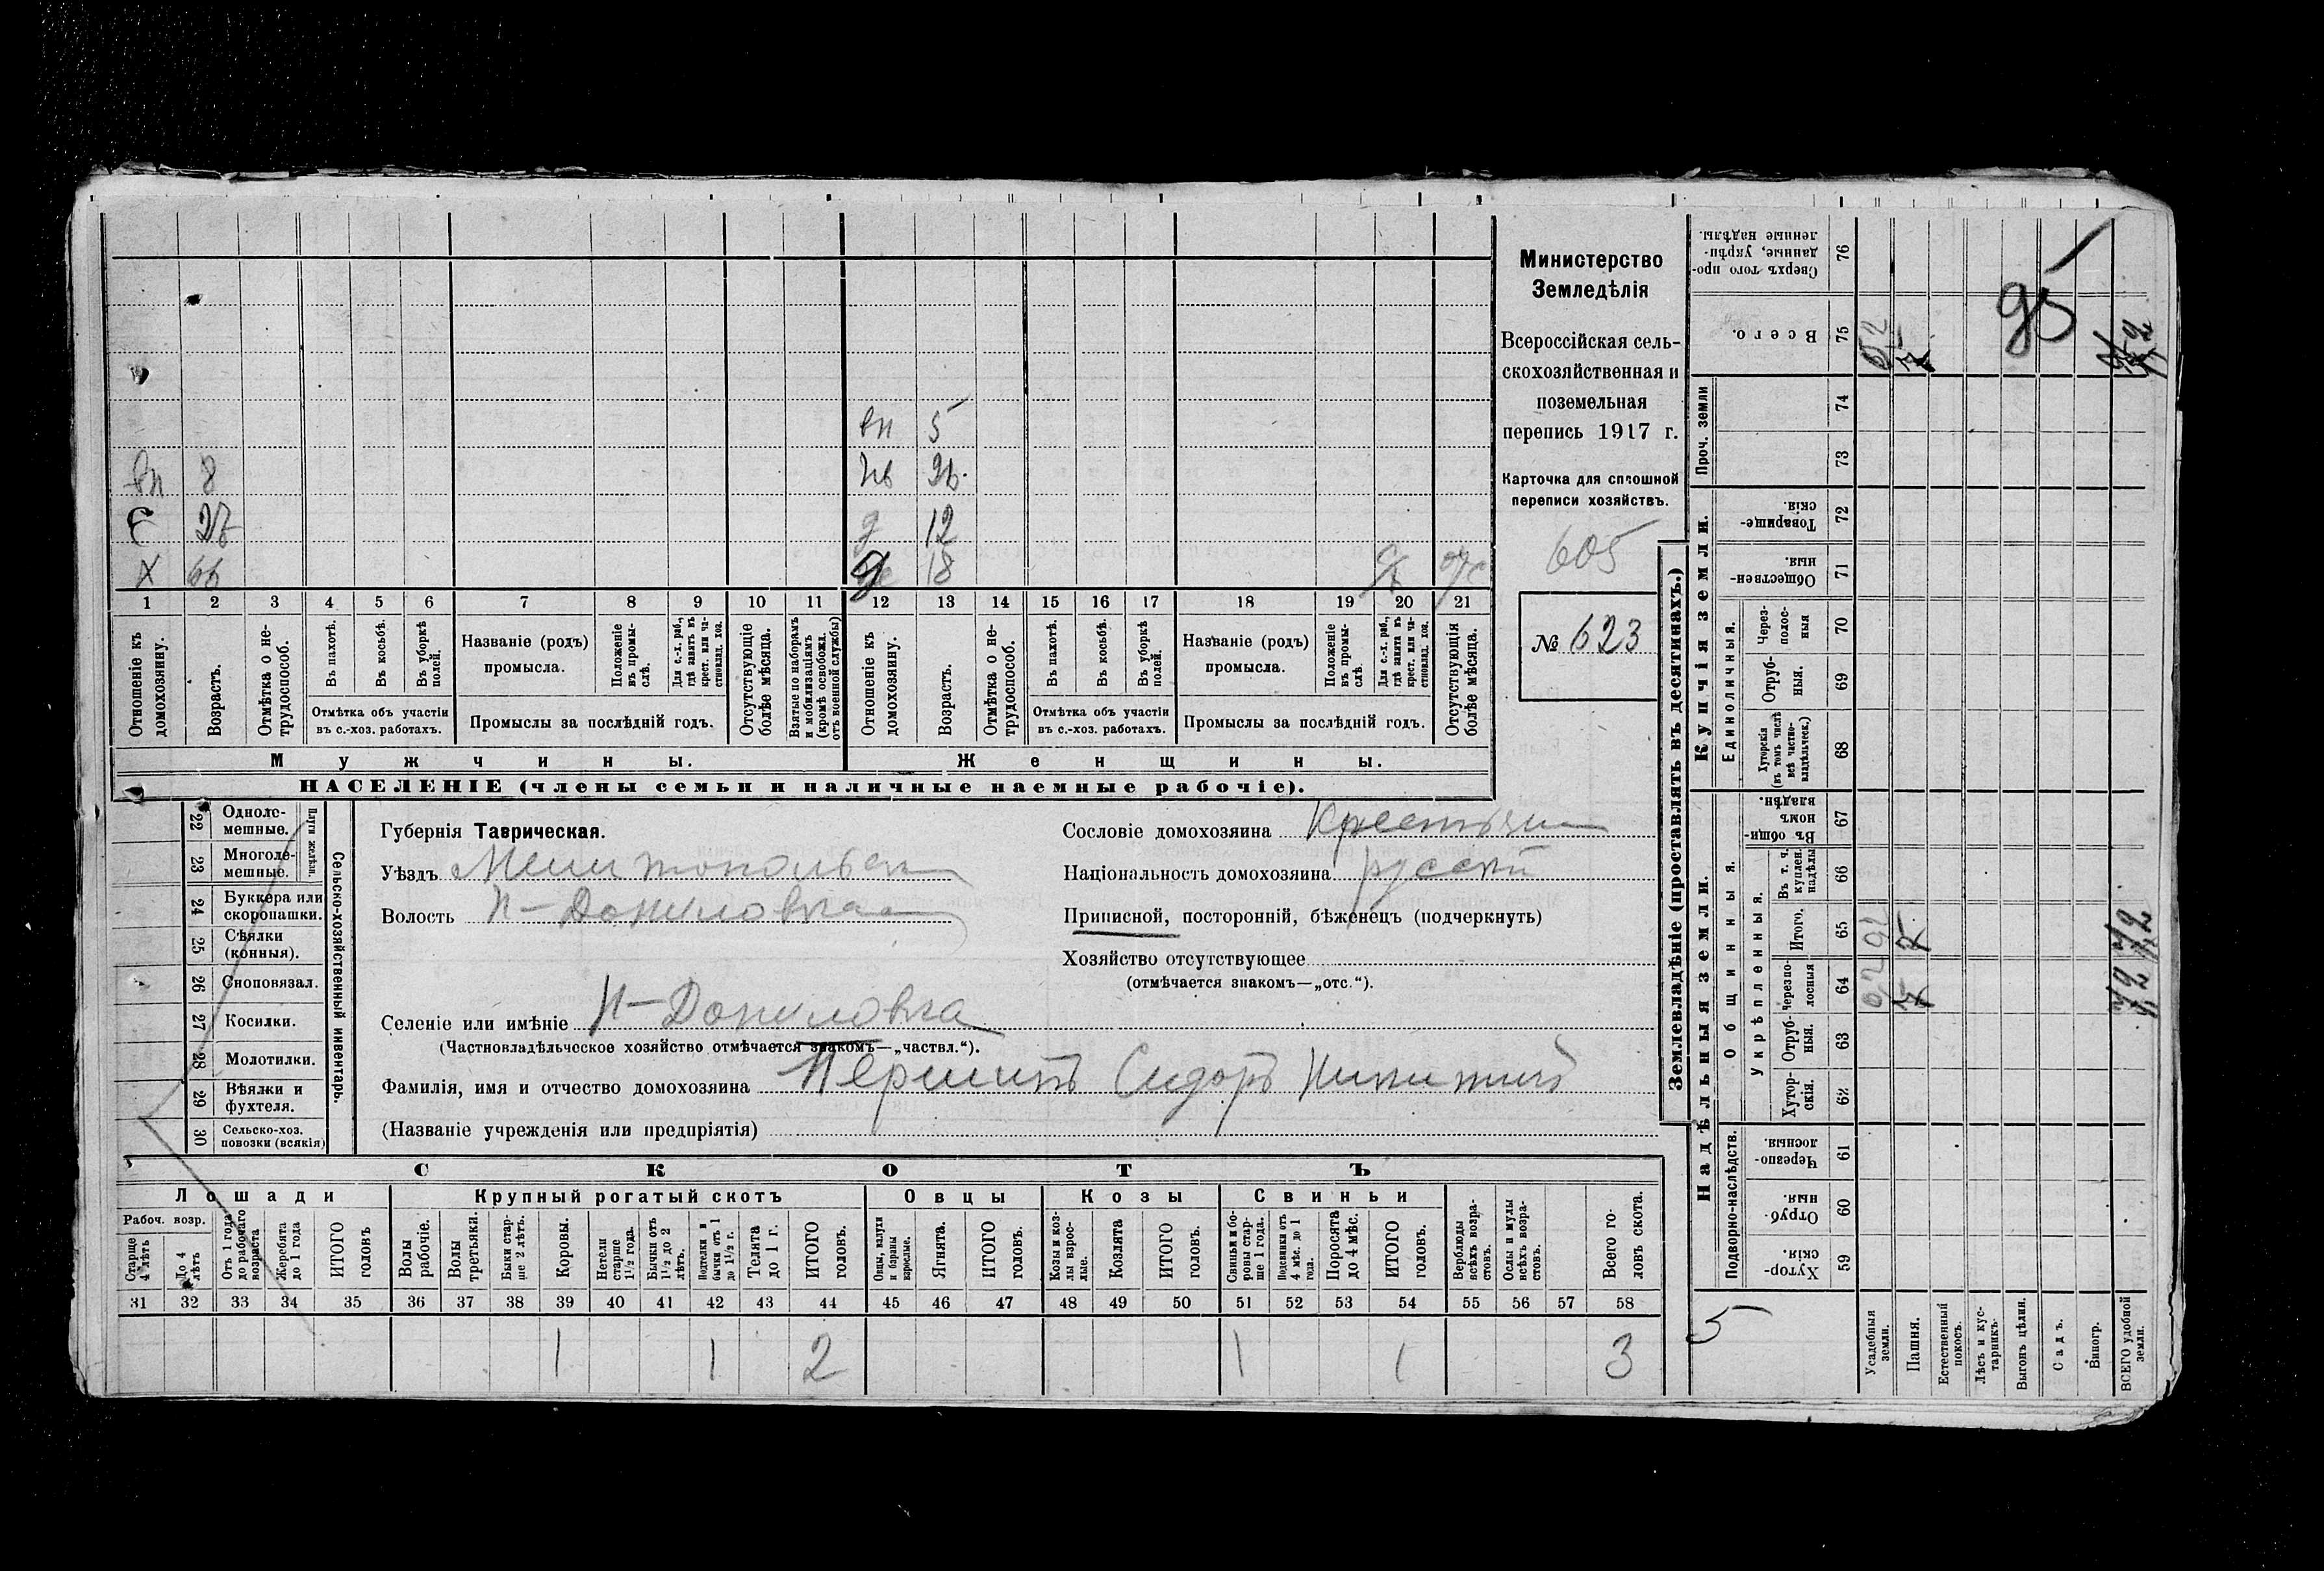 Министерство
Земледѣлія
Всероссійская сель-
скохозяйственная и
поземельная
перепись 1917 г.
Карточка для сплошной
переписи хозяйствъ.
605
№ 623
вп 5
вп 8
27 д 12
х 66 18
1 2 3 4 5 6 7 8 9 10 11 12 13 14 15 16 17 18 19 20 21
Отношеніе къ домохозяину.
Возрастъ.
Отмѣтка о не-трудоспособ.
Въ пахотѣ.
Въ косьбѣ.
Въ уборкѣ полей.
Отмѣтка объ участіи въ с.-хоз. работахъ.
Названіе (родъ) промысла.
Положеніе въ промы-слѣ.
Для с.-х. раб., гдѣ занятъ въ крест. или ча-стновлад. хоз.
Промыслы за послѣдній годъ.
Отсутствующіе болѣе мѣсяца.
Взятые по наборамъ и мобилизаціямъ (кромѣ освобожд. отъ военной службы)
Отношеніе къ домохозяину.
Возрастъ.
Отмѣтка о не-трудоспособ.
Въ пахотѣ.
Въ косьбѣ.
Въ уборкѣ полей.
Отмѣтка объ участіи въ с.-хоз. работахъ.
Названіе (родъ) промысла.
Положеніе въ промы-слѣ.
Для с.-х. раб., гдѣ занята въ крест. или ча-стновлад. хоз.
Промыслы за послѣдній годъ.
Отсутствующія болѣе мѣсяца.
Мужчины. Женщины.
НАСЕЛЕНІЕ (члены семьи и наличные наемные рабочіе).
22 Одноле-мешные.
23 Многоле-мешные.
Плуги желѣзн.
24 Буккера или скоропашки.
25 Сѣялки (конныя).
26 Сноповязал.
27 Косилки.
28 Молотилки.
29 Вѣялки и фухтеля.
30 Сельско-хоз. повозки (всякія)
Сельско-хозяйственный инвентарь.
Губернія Таврическая.
Уѣздъ Мелитопольск
Волость Н-Даниловка
Селеніе или имѣніе Н-Даниловка
(Частновладѣльческое хозяйство отмѣчается знакомъ—„частвл.“).
Фамилія, имя и отчество домохозяина Першинъ Сидоръ Никитичъ
(Названіе учрежденія или предпріятія)
Сословіе домохозяина Крестьян
Національность домохозяина русскій
Приписной, посторонній, бѣженецъ (подчеркнуть)
Хозяйство отсутствующее
(отмѣчается знакомъ—„отс.“).
СКОТЪ
Лошади Крупный рогатый скотъ Овцы Козы Свиньи
Рабоч. возр.
Старше 4 лѣтъ
До 4 лѣтъ
Отъ 1 года до рабочаго возраста
Жеребята до 1 года
ИТОГО головъ
Волы рабочіе.
Волы третьяки.
Быки стар-ше 2 лѣтъ.
Коровы.
Нетели старше 1½ года.
Бычки отъ 1½ до 2 лѣтъ.
Подтелки и бычки отъ 1 до 1½ г.
Телята до 1 г.
ИТОГО головъ.
Овцы, валухи и бараны взрослые.
Ягнята.
ИТОГО головъ.
Козы и коз-лы взрос-лые.
Козлята
ИТОГО головъ.
Свиньи и бо-ровы стар-ше 1 года.
Подсвинки отъ 4 мѣс. до 1 года.
Поросята до 4 мѣс.
ИТОГО головъ.
Верблюды всѣхъ возра-стовъ.
Ослы и мулы всѣхъ возра-стовъ.
Всего го-ловъ скота.
31 32 33 34 35 36 37 38 39 40 41 42 43 44 45 46 47 48 49 50 51 52 53 54 55 56 57 58
1 1 2 1 1 3
Землевладѣніе (проставлять въ десятинахъ.)
Купчія земли.
Надѣльныя земли.
Сверхъ того про-данные, укрѣп-ленные надѣлы. 76
Всего. 75
Проч. земли 74 73
Товарище-скія. 72
Обществен-ныя. 71
Единоличныя.
Через-полос-ныя 70
Отруб-ныя. 69
Хуторскія (въ томъ числѣ всѣ частно-владѣльческ.) 68
Общинныя.
Въ общи-номъ владѣн. 67
Укрѣпленныя.
Въ т. ч. куплен. надѣлы 66
Итого. 65
Черезпо-лосныя 64
Отруб-ныя. 63
Хутор-скія. 62
Подворно-наслѣдств.
Черезпо-лосныя. 61
Отруб-ныя. 60
Хутор-скія. 59
5
Усадебныя земли.
Пашня.
Естественный покосъ.
Лѣсъ и кус-тарникъ.
Выгонъ цѣлин.
Садъ.
Виногр.
ВСЕГО удобной земли.